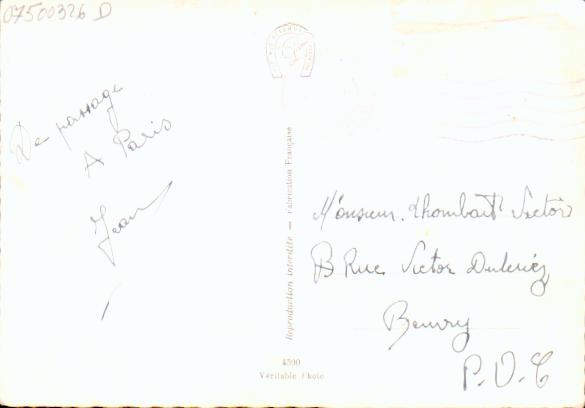 07500326 D
De passage
A Paris
Jean
Reproduction interdite — Fabrication Française
4390
Véritable Photo
Monsieur Lhombart Victor
B Rue Victor
Beuvry
P.D.C